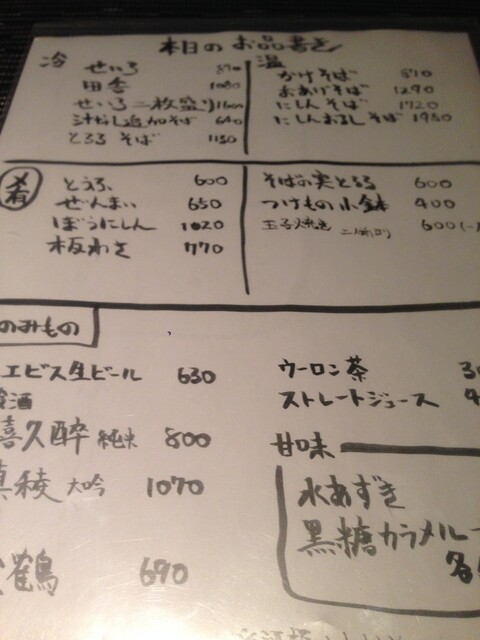 本日のお品書き
冷
せいろ 870
田舎 1080
せいろ二枚盛り 1600
汁だし追加そば 640
とろろそば 1130
温
かけそば 870
おあげそば 1290
にしんそば 1720
にしんおろしそば 1950
肴
とうふ 600
ぜんまい 650
ぼうにしん 1020
板わさ 770
そばの実とろろ 600
つけもの小鉢 400
玉子焼き 600
のみもの
エビス生ビール 630
酒
喜久酔 純米 800
真稜 大吟 1070
鶴 690
ウーロン茶
ストレートジュース
甘味
水あずき
黒糖カラメル
各